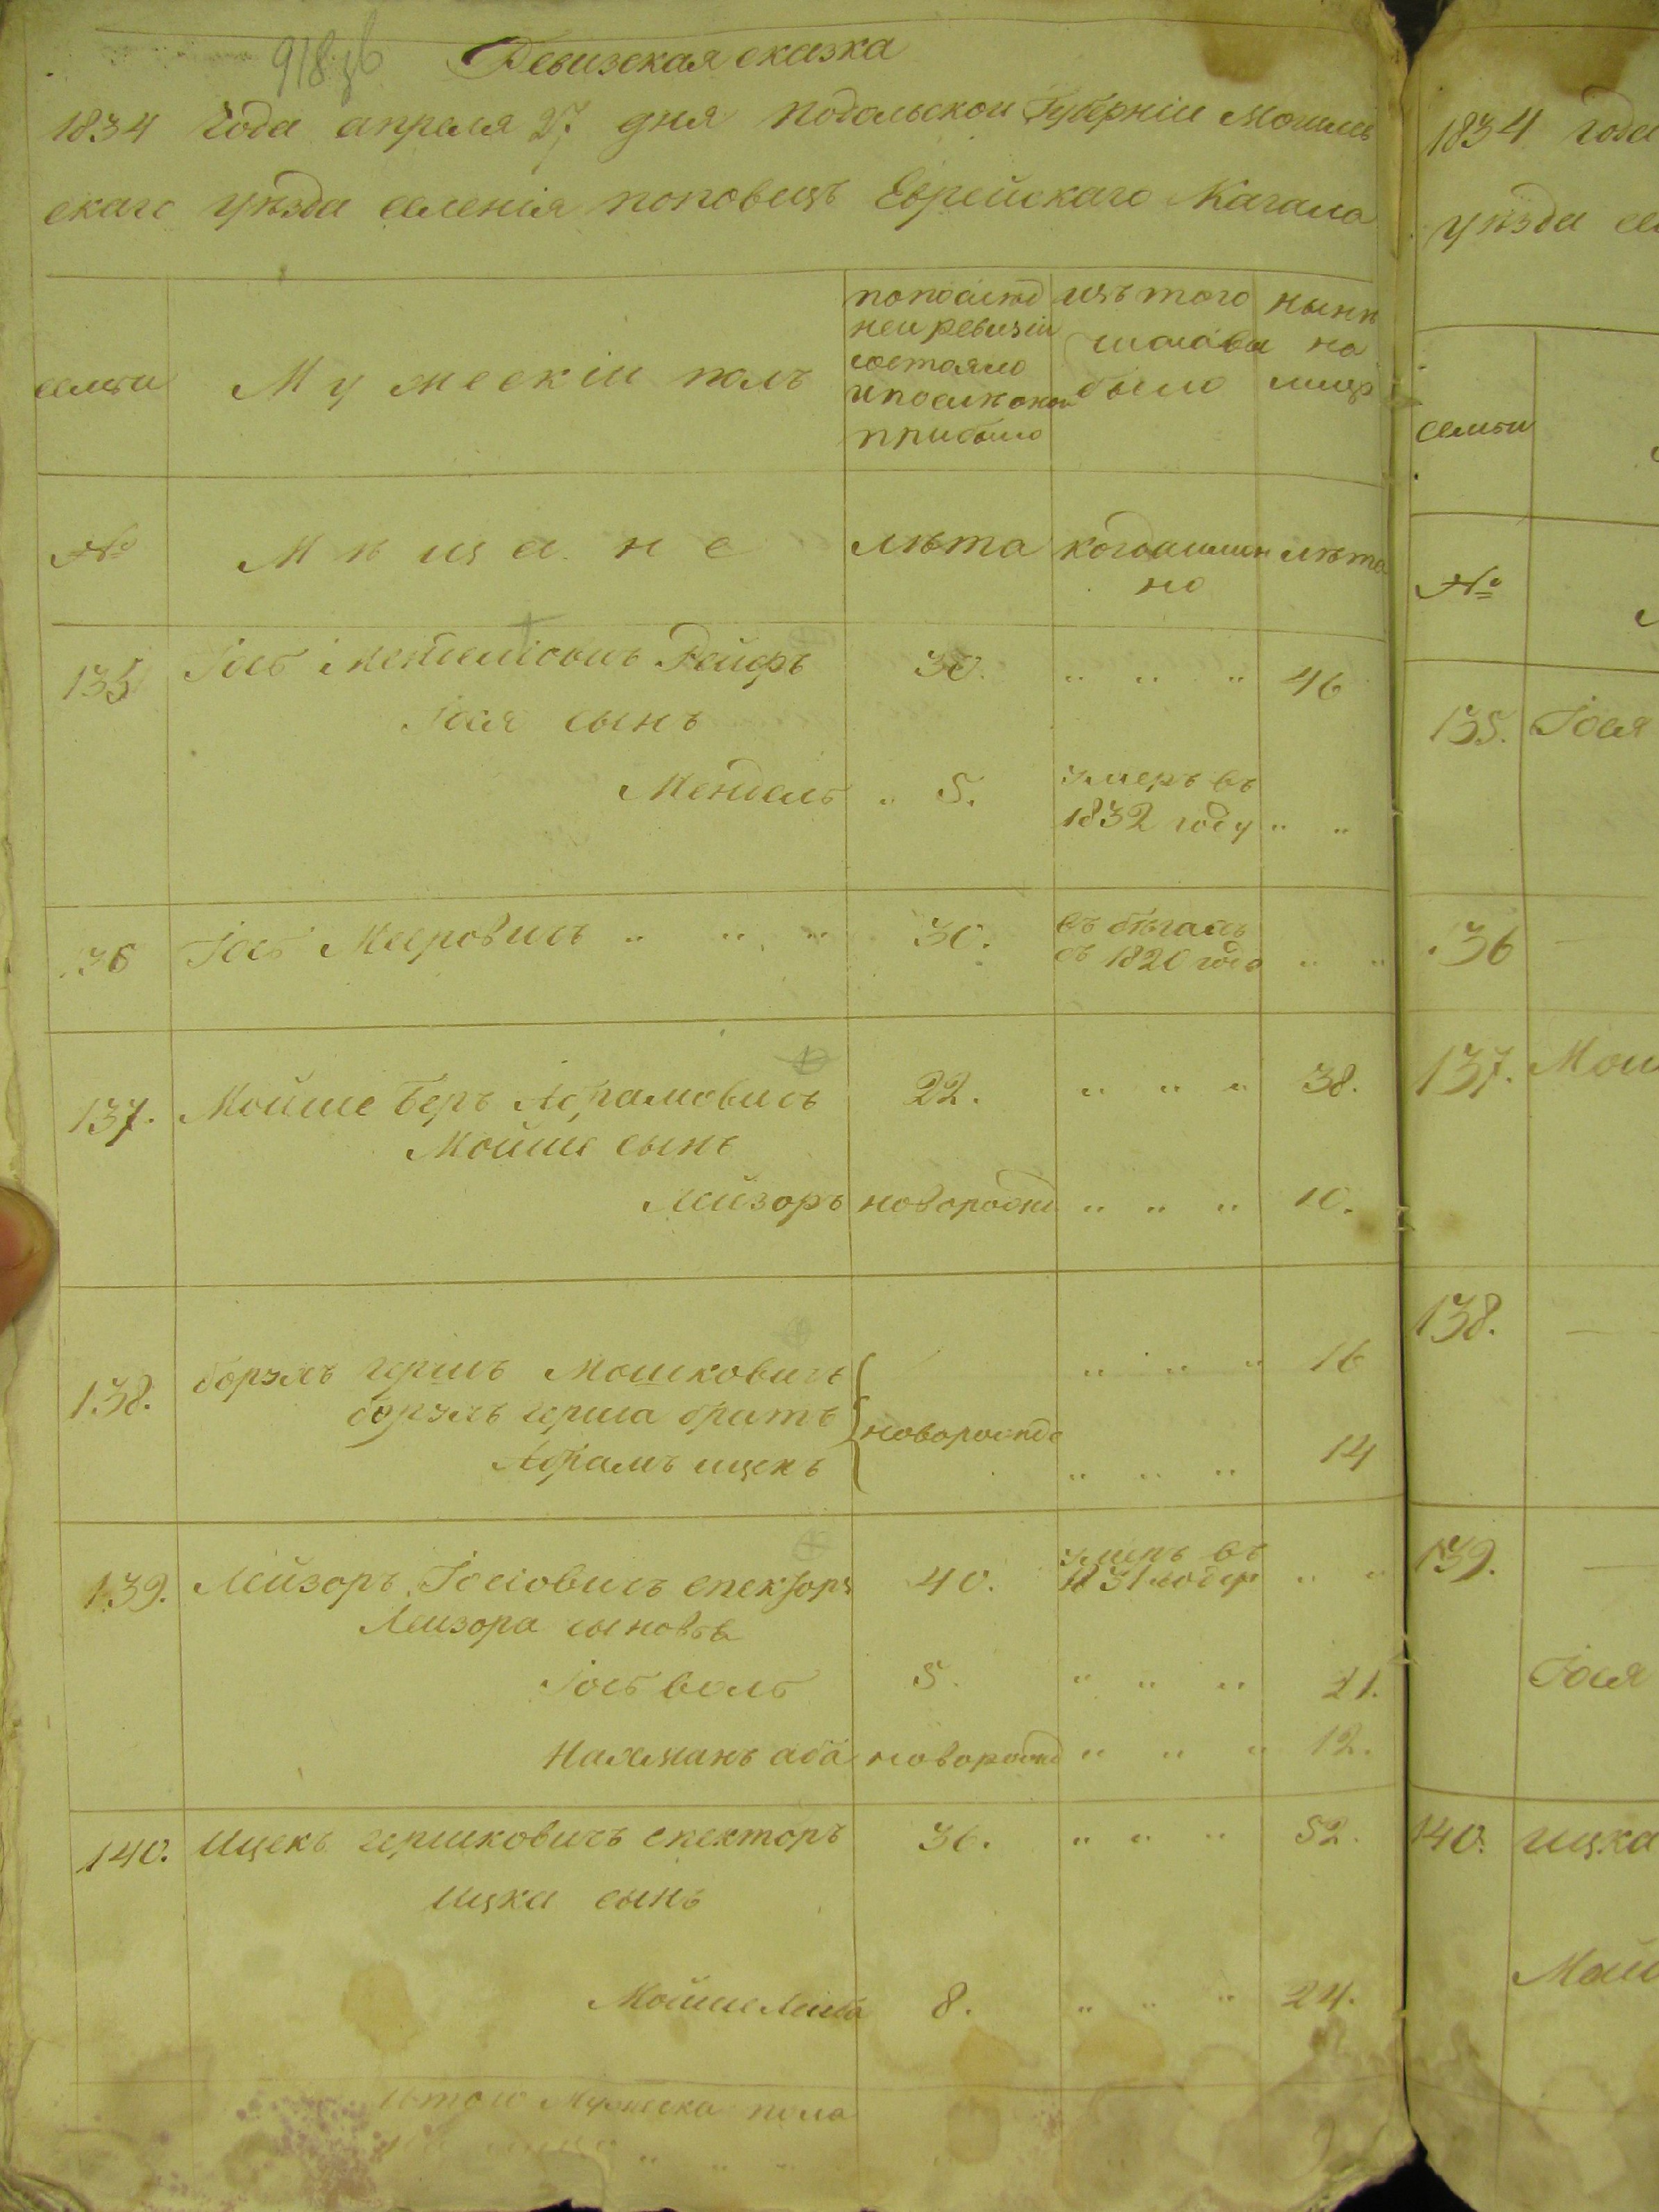 918
Ревизская сказка
1834 года апреля 27 дня подольской Губерніи Могилев
скаго уѣзда селенія поповецъ Еврейскаго Кагала
семьи
Мужескій полъ
по послѣд
ней ревизіи
состояло
и послѣ оной
прибыло
изъ того
числа вы
было
нынѣ
на
лицо
№
Мѣщане
лѣта
когда имен
но
лѣта
135 Іось Менделіовичъ Рейфъ 30. " " " 46
Іося сынъ
Мендель " 5. умеръ въ
1832 году " "
136 Іось Мееровичъ " " " 30. въ бѣгахъ
съ 1820 года " "
137. Мойше Беръ Абрамовичъ 22. " " " 38.
Мойши сынъ
Лейзоръ новорожд " " " 10.
138. борухъ гершъ Мошковичъ " " " 16
борухъ герша братъ
новорожде
Абрамъ ицекъ " " " 14
139. Лейзоръ Іосіовичъ спекторъ 40. умеръ въ
1831 годе " "
Лейзора сыновья
Іось волъ 5. " " " 21.
Нахманъ аба новорожд " " " 12.
140. Ицекъ гершковичъ спекторъ 36. " " " 52.
ицка сынъ
Мойше Лейба 8. " " " 24.
итого Мужеска пола
" " "
1834 года
уѣзда се
семьи
№
135. Іося
136
137. Мош
138.
139.
Іося
140. ицка
Мош